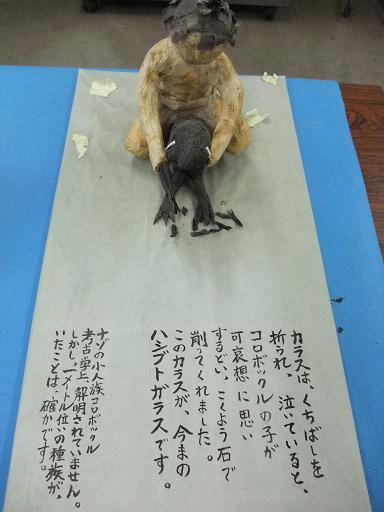 カラスは、くちばしを
折られ、泣いていると、
コロボックルの子が
可哀想に思い
するどい、こくよう石で
削ってくれました。
このカラスが、今まの
ハシブトガラスです。
ナゾの小人族コロボックル
考古学上、解明されていません。
しかし、一メートル位いの種族が、
いたことは、確かです。